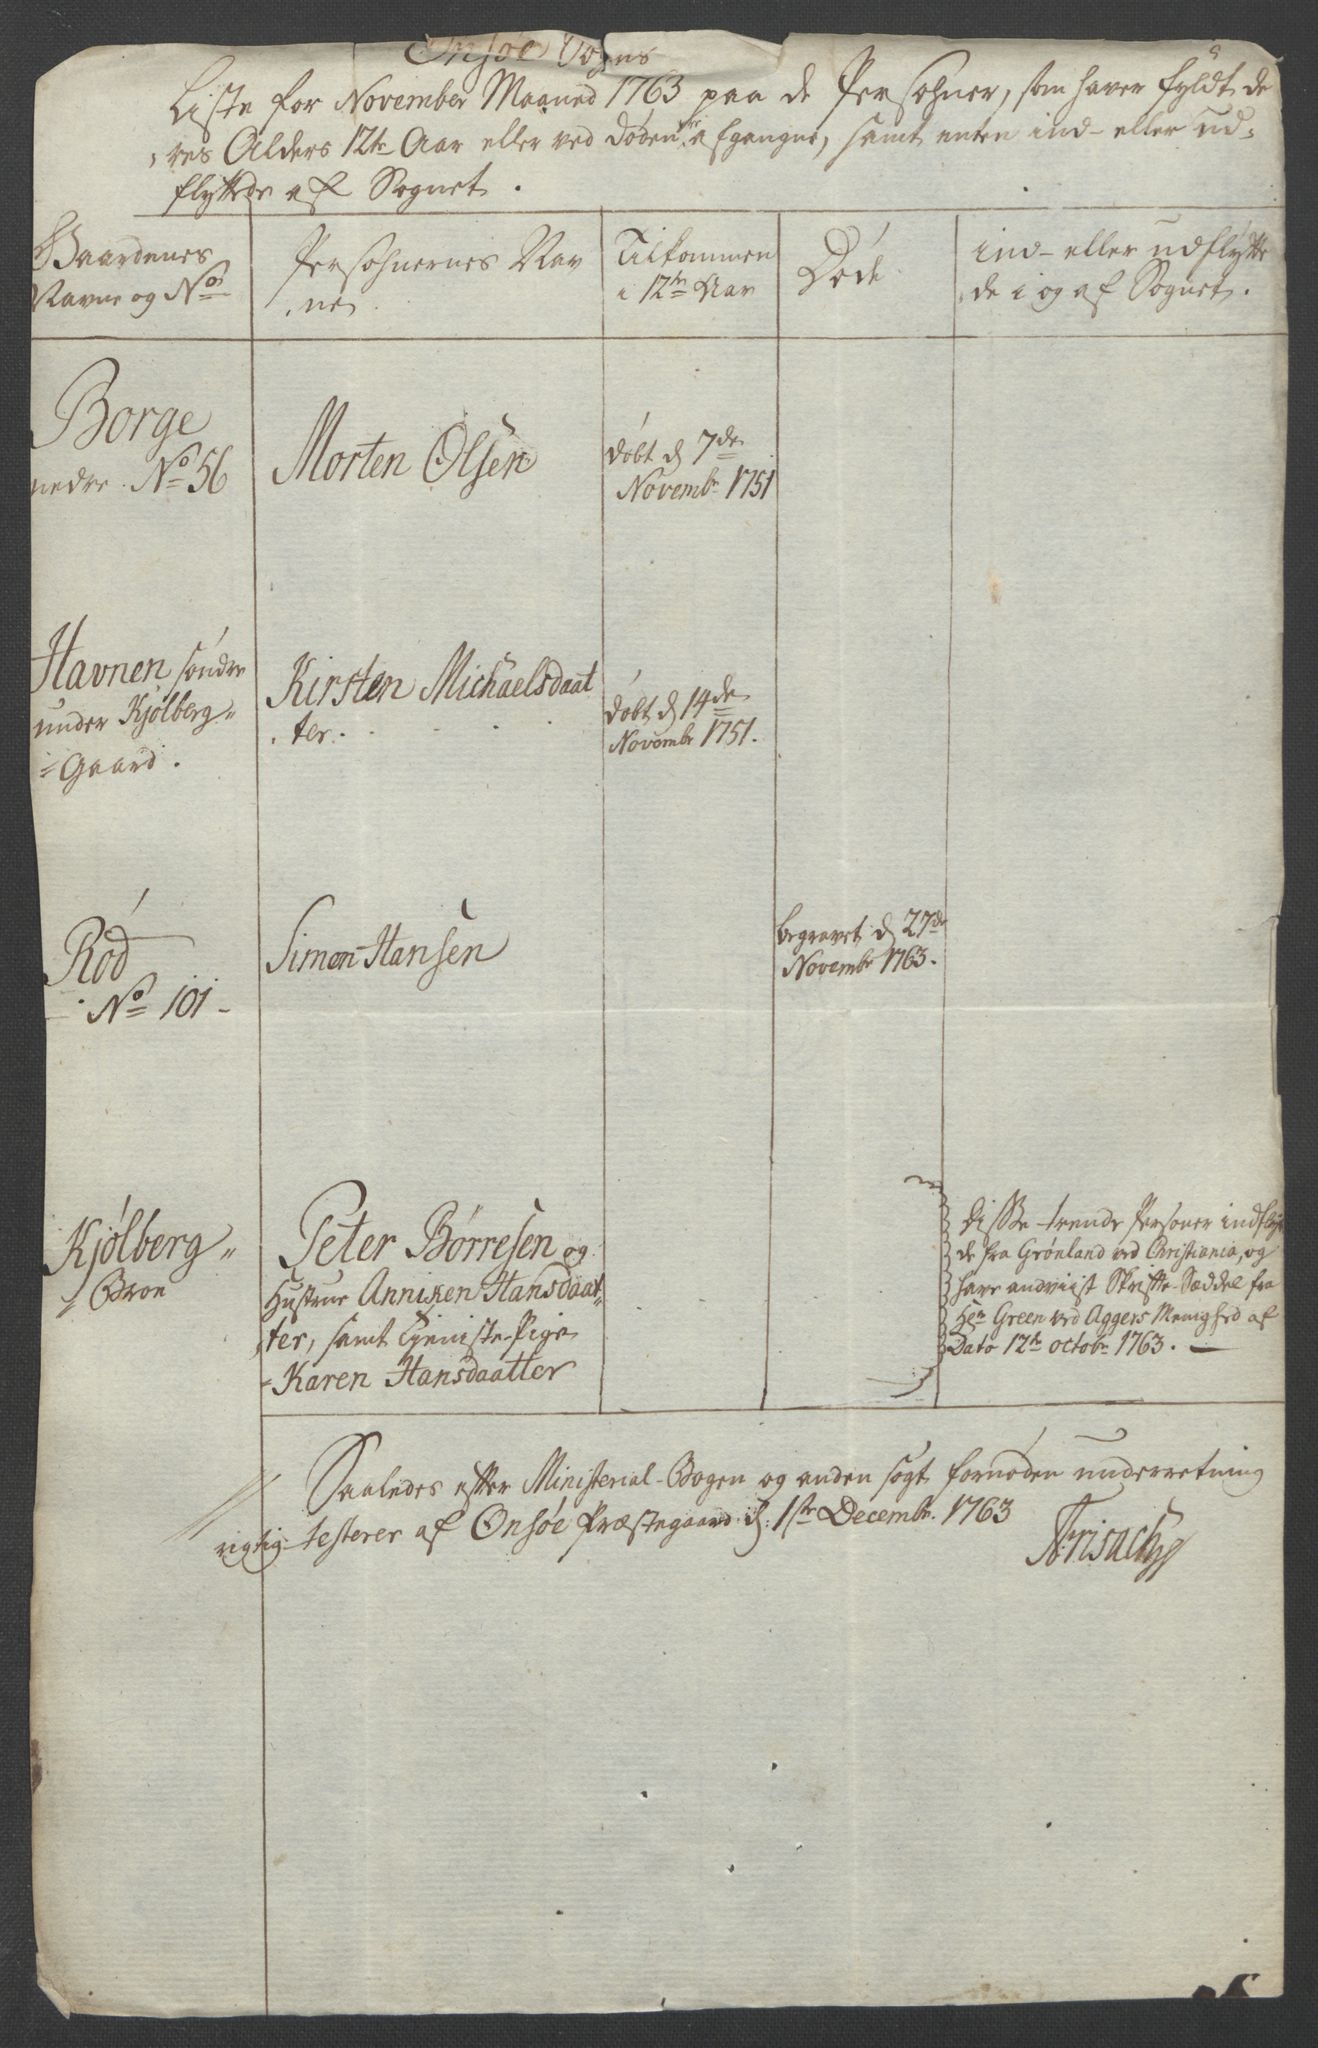 Onsøe Sogns
Liste for November Maaned 1763 paa de Persohner, som haver fyldt de
res Alders 12te Aar eller ved Døden ere afgangne, samt enten ind- eller ud-
flyttede af Sognet.
Gaardenes
Navne og No
Persohnernes Nav
ne
Tilkommen
i 12te Aar
Døde
ind- eller udflytte
de i og af Sognet.
Borge
nedre No 56
Morten Olsen
døbt d 7de
Novembr 1751
Havnen søndre
under Kjølberg-
Gaard.
Kirsten Michaelsdaat
ter.
døbt d 14de
Novembr 1751.
Rød
No 101
Simon Hansen
begravet d 27de
Novembr 1763.
Kjølberg-
Broe
Peter Børresen og
Hustrue Anniken Hansdaat
ter, samt Tieniste-Pige
Karen Hansdaatter
Disse trende Personer indflyt
de fra Grønland ved Christiania, og
have anviist Skrifte-Sæddel fra
Hen Green ved Aggers Menighed af
Dato 12te octobr 1763.
Saaledes efter Ministerial-Bogen og anden søgt fornøden underretning
rigtig testerer af Onsøe Præstegaard d: 1ste Decembr. 1763
N: Frisach